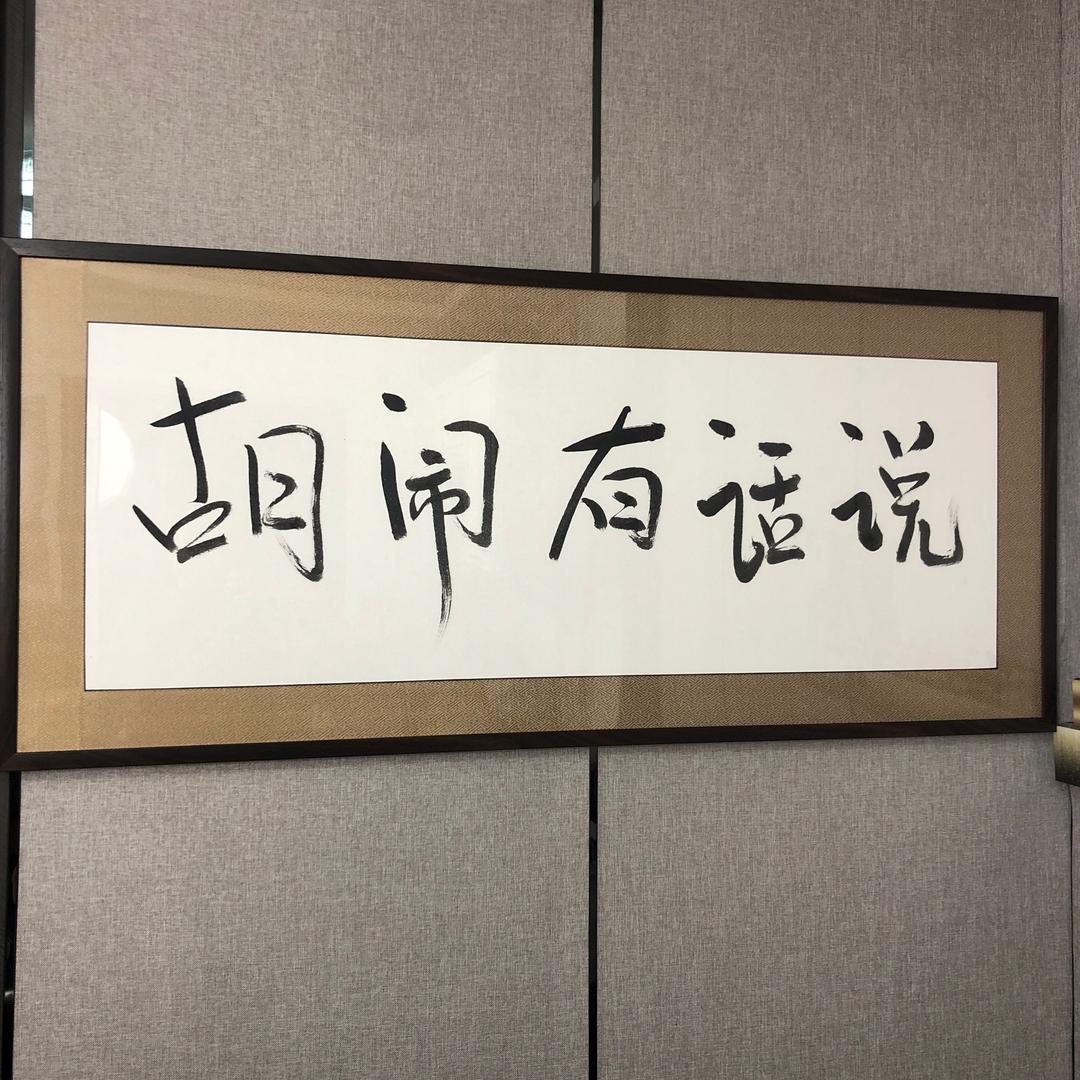 胡闹有话说